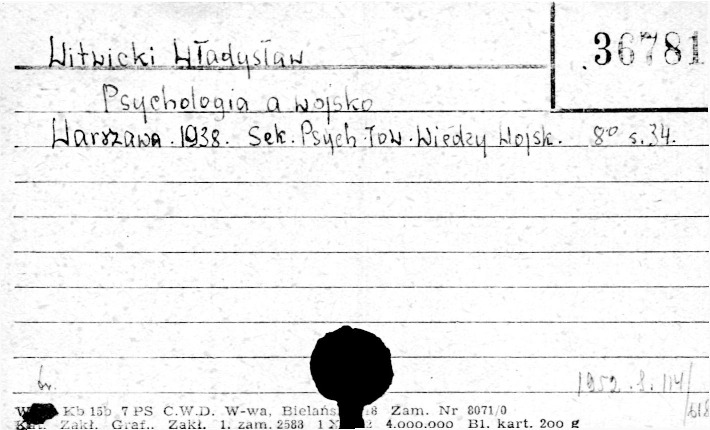 Witwicki Władysław
36781
Psychologia a wojsko
Warszawa. 1938. Sek. Psych. Tow. Wiedzy Wojsk. 8° s. 34.
br.
1952. 8. 114/618
Kb 15b 7 PS C.W.D. W-wa, Bielańs 18 Zam. Nr 8071/0
Zakł. Graf., Zakł. 1. zam. 2583 4.000.000 Bl. kart. 200 g